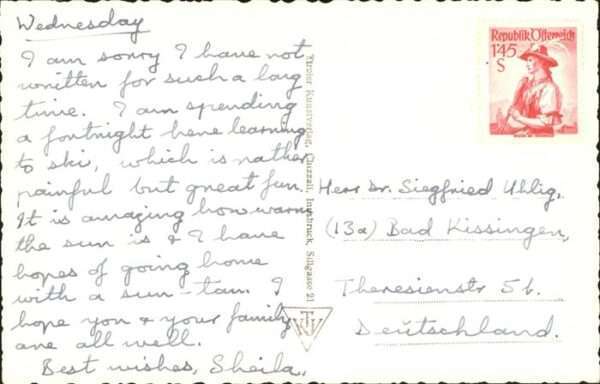 Wednesday
I am sorry I have not
written for such a long
time. I am spending
a fortnight here learning
to ski, which is rather
painful but great fun.
It is amazing how warm
the sun is & I have
hopes of going home
with a sun-tan. I
hope you & your family
are all well.
Best wishes, Sheila.
Tiroler Kunstverlag, Chizzali, Innsbruck, Sillgasse 21
Republik Österreich
1'45
S
Herr Dr. Siegfried Uhlig,
(13a) Bad Kissingen,
Theresienstr 5b.
Deutschland.